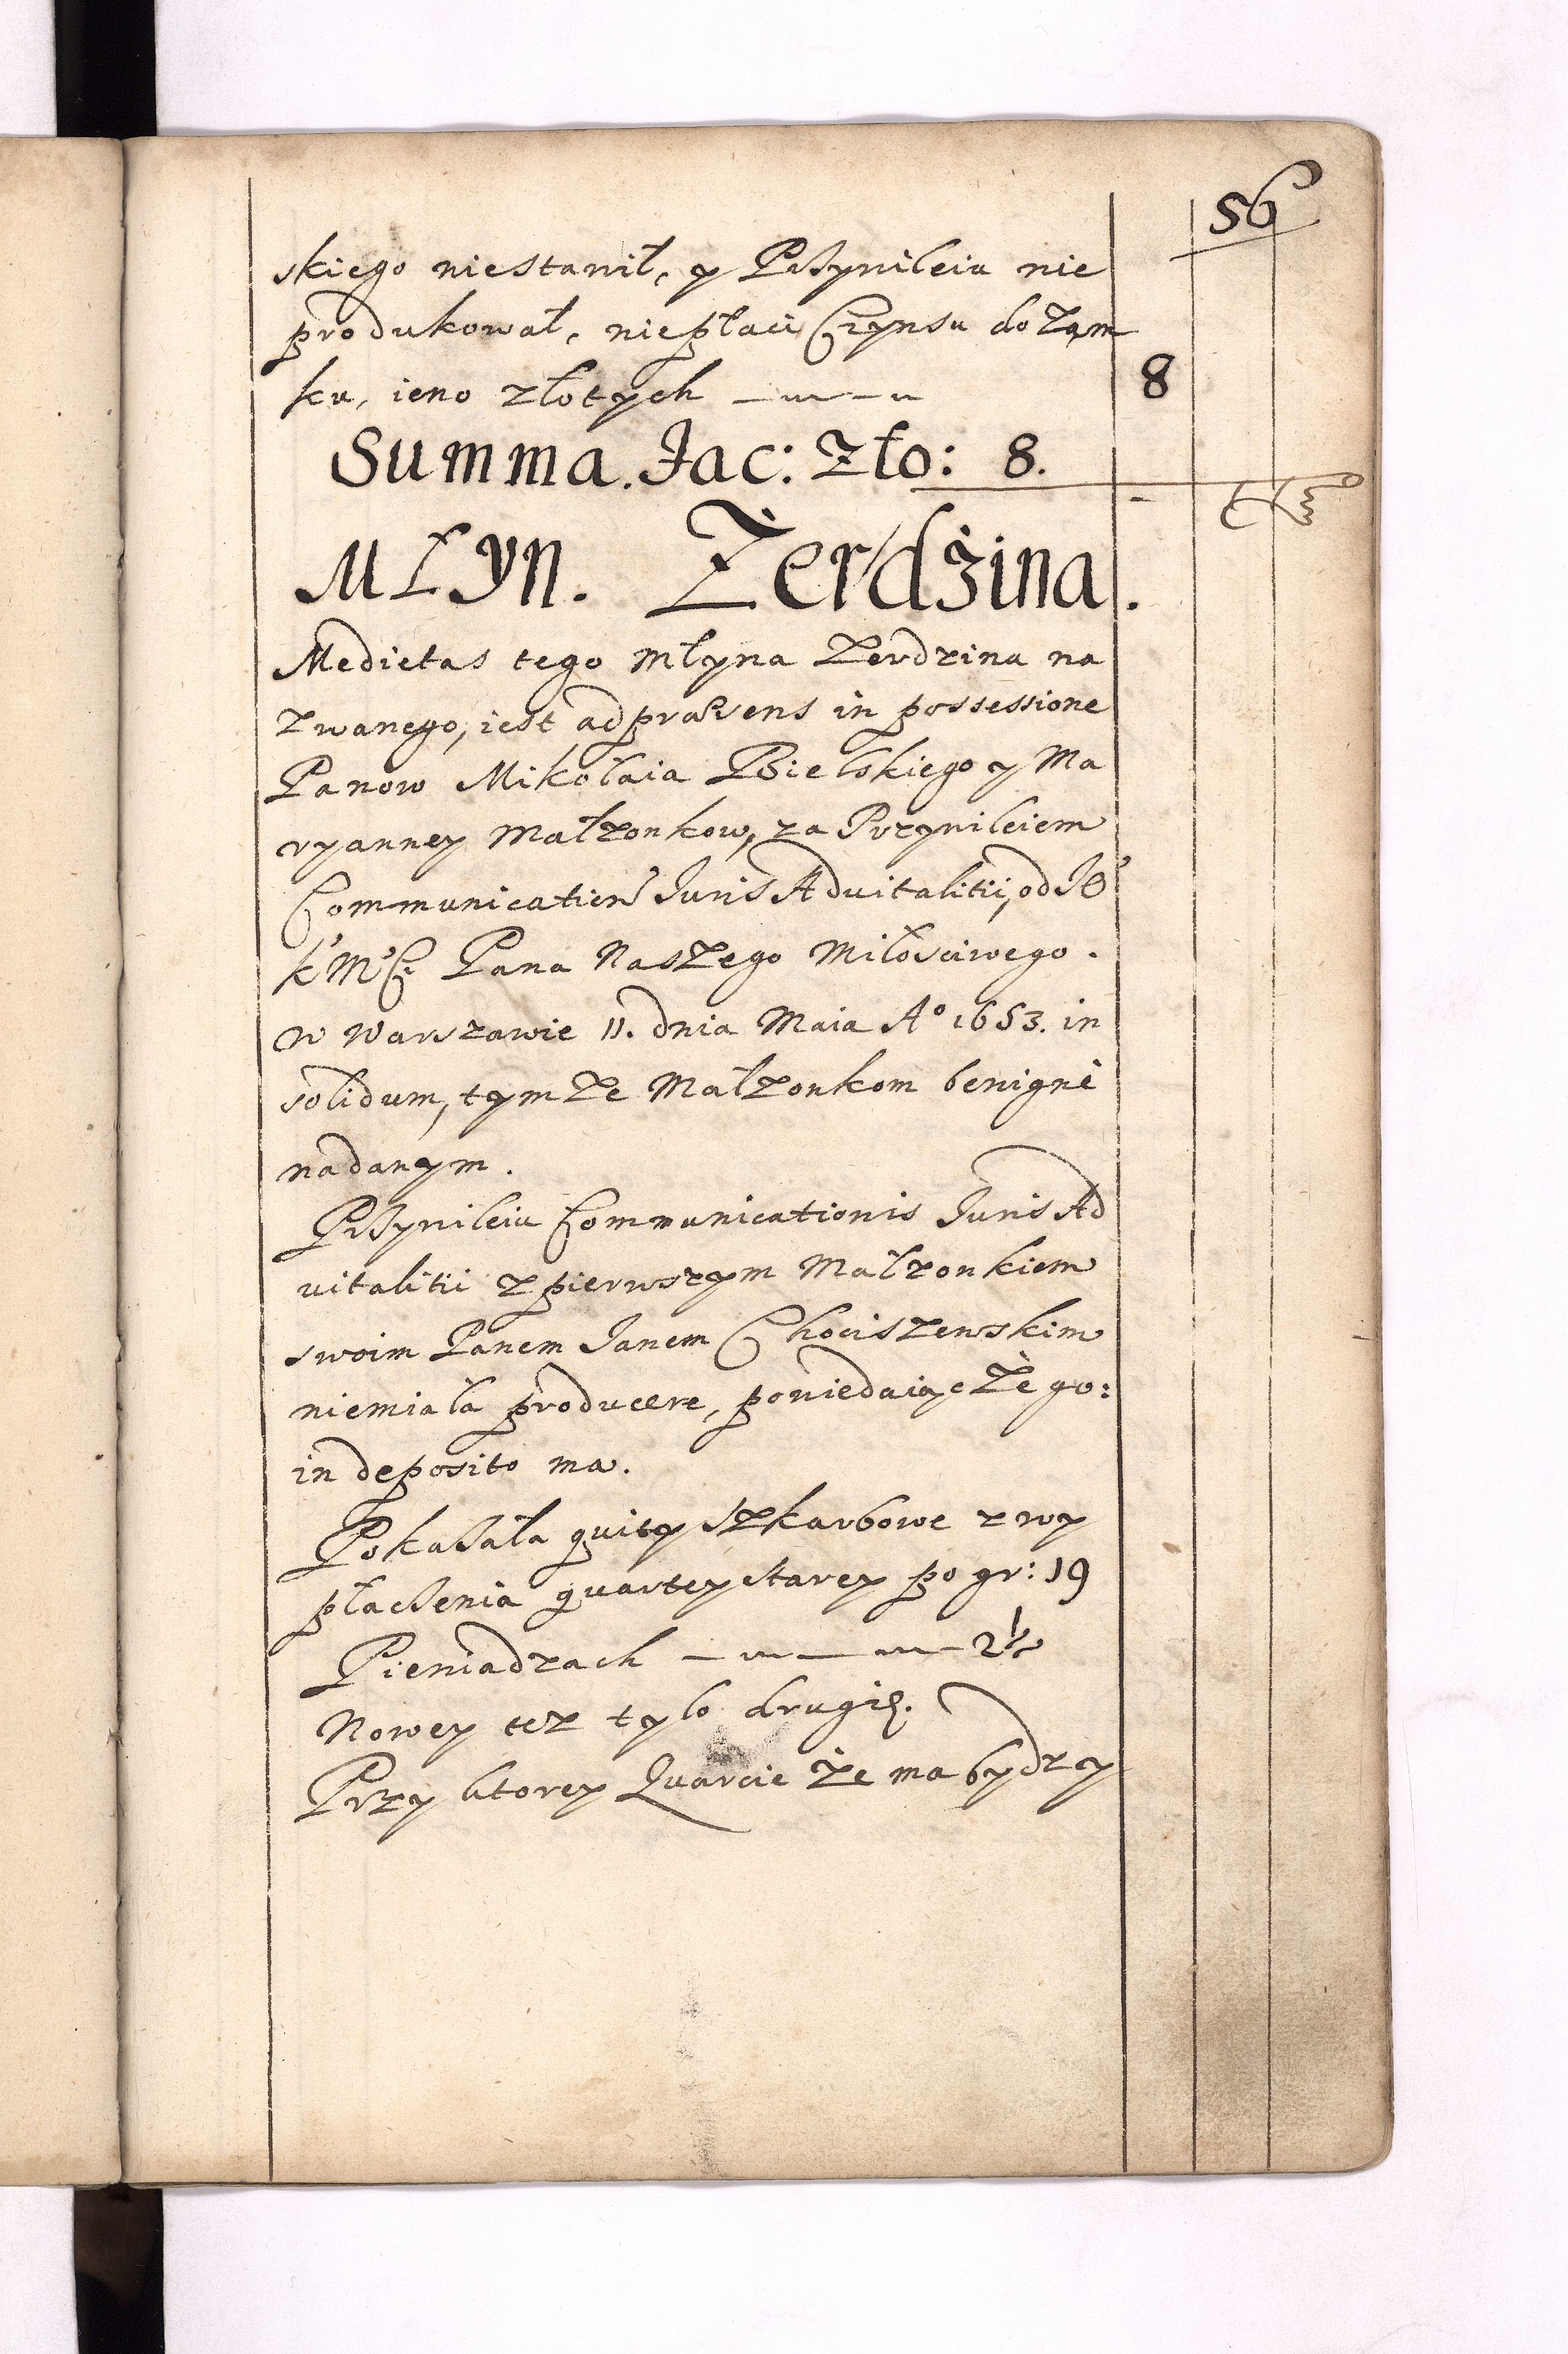 56
skiego niestawił, y Przywileiu nie
produkował, niepłaci Czynsu do Zam
ku, ieno złotych 8
Summa. Fac: Zło: 8.
MŁYN. Żerdżina.
Medietas tego Młyna Żerdzina na
zwanego, iest ad præsens in possessione
Panow Mikołaia Bielskiego y Ma
ryanney Małżonkow, za Przywileiem
Communicationis Juris Advitalitii, od Je°
K' M'C: Pana Naszego Miłosciwego.
w Warszawie 11. dnia Maia A° 1653. in
solidum, tymże Małżonkom benignè
nadanym.
Przywileiu Communicationis Juris Ad
vitalitii z pierwszym Małżonkiem
swoim Panem Janem Chociszewskim
niemiała producere, powiedaiąc że go:
in deposito ma.
Pokazała quity Szkarbowe z wy
płacenia quarty starey po gr: 19
Pieniadzach 2½
Nowey tez tylo drugie.
Przy ktorey Quarcie że ma bydz y